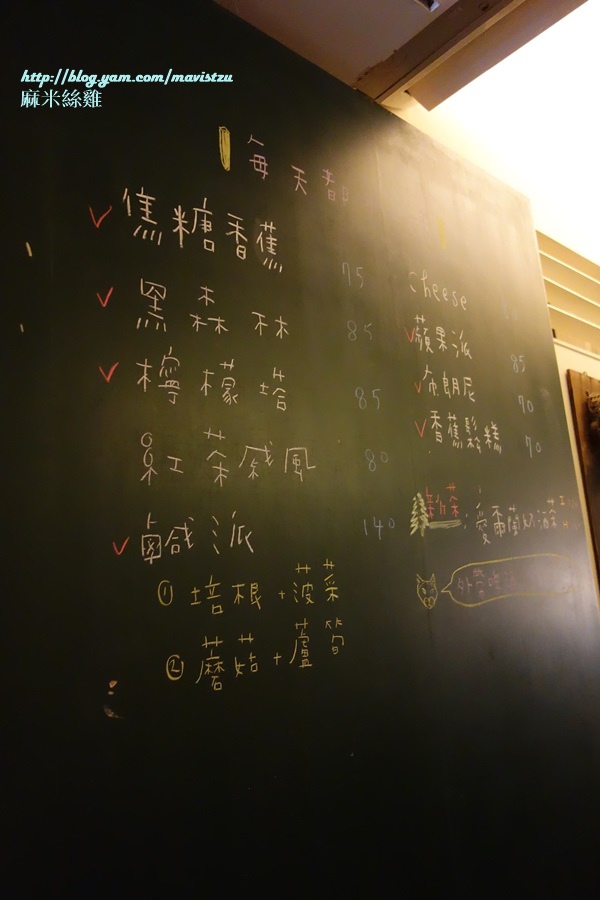 http://blog.yam.com/mavistzu
麻米絲雞
每天都
焦糖香蕉 75
黑森林 85
檸檬塔 85
紅茶戚風 80
鹹派 140
① 培根+菠菜
② 蘑菇+蘆筍
cheese
蘋果派 85
布朗尼 70
香蕉鬆糕 70
新茶:愛爾蘭奶酒茶